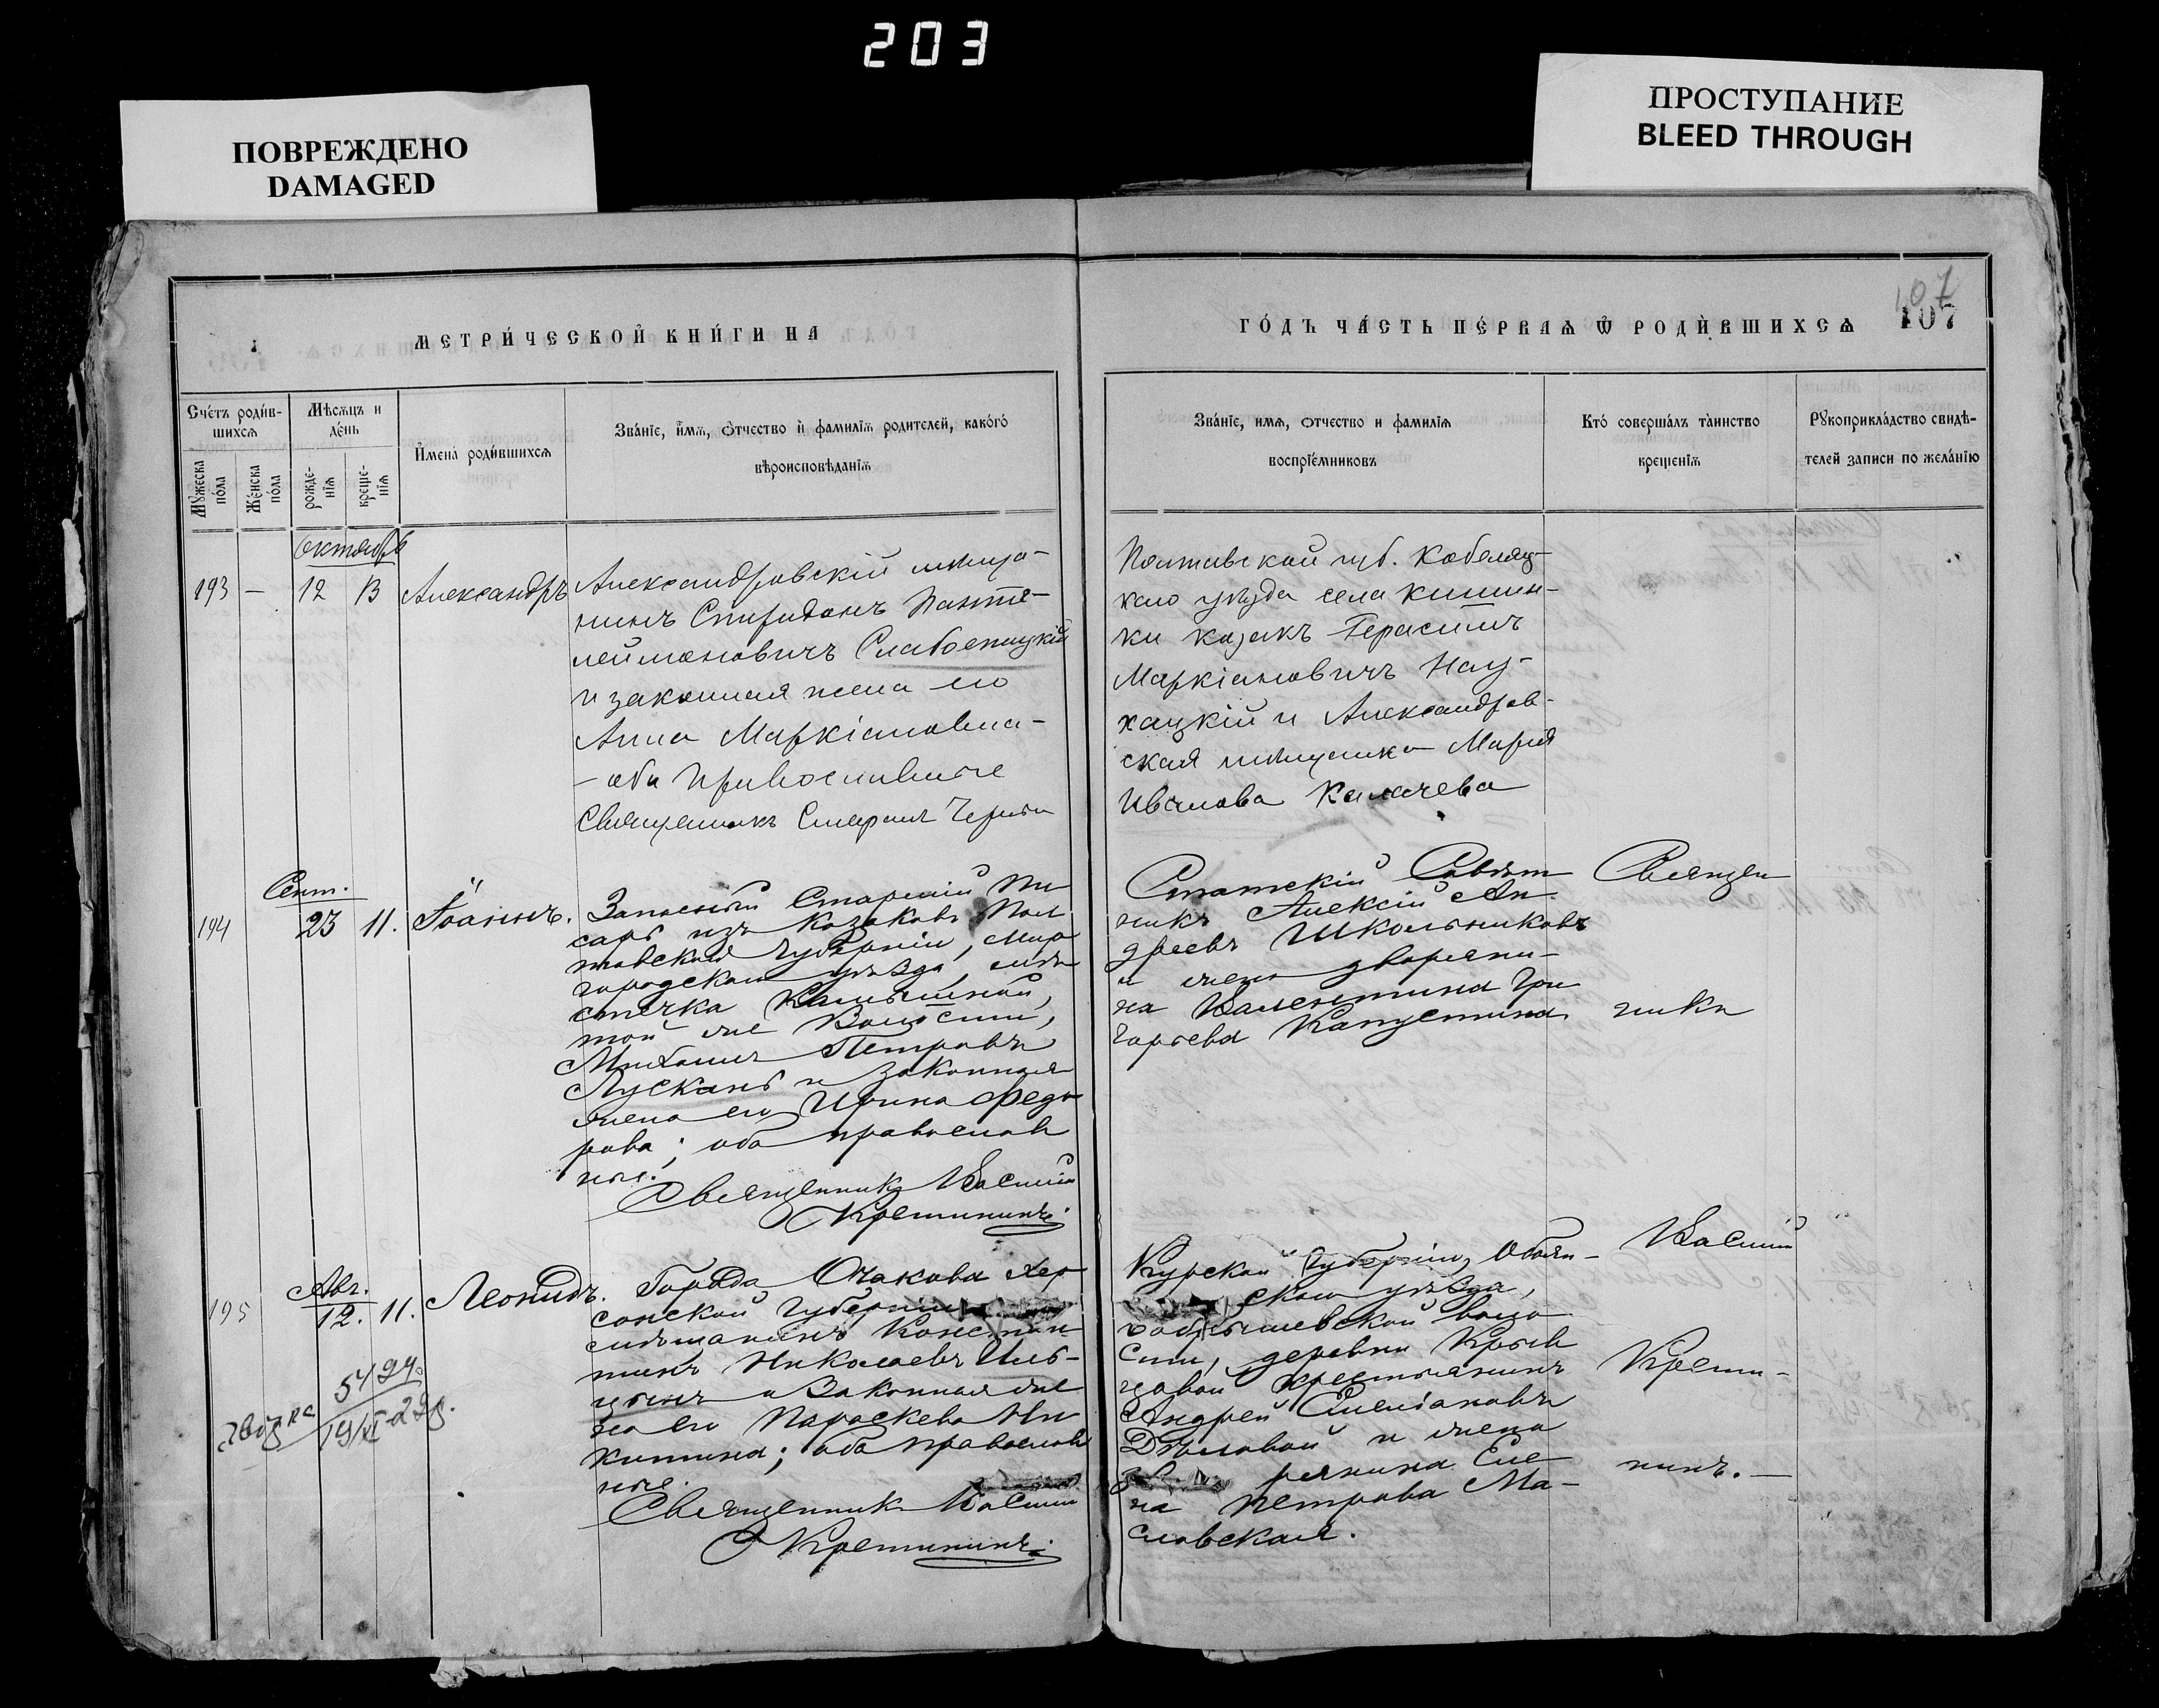 203
ПОВРЕЖДЕНО
DAMAGED
ПРОСТУПАНИЕ
BLEED THROUGH
МЕТРИ́ЧЕСКОЙ КНИ́ГИ НА
ГО́ДЪ ЧА́СТЬ ПЕ́РВАѦ Ѿ РОДИ́ВШИХСѦ
107
107
Счётъ роди́в-
шихсѧ
Мѣсѧцъ и
де́нь
Мꙋжеска
по́ла
Же́нска
по́ла
рожде-
нїѧ
креще-
нїѧ
И҆мена̀ роди́вшихсѧ
Зва́нїе, и҆мѧ, ѻ҆тчество и҆ фамилїѧ родителей, како́гѡ
вѣроисповѣданїѧ
Зва́нїе, имѧ, ѻтчество и фамилїѧ
воспрїе́мниковъ
Кто́ соверша́лъ та́инство
крещенїѧ
Рꙋкоприкла́дство свидѣ-
телей записи по жела́нїю
октябрь
193 — 12 13 Александръ
Александровскій мѣща-
нинъ Спиридонъ Панте-
леймоновичъ Слабоспицкій
и законная жена его
Анна Маркіановна —
— оба православные
Священникъ
Полтавской губ. Кобеляц-
каго уѣзда села Кишен-
ки казакъ Герасимъ
Маркіановичъ
и Александров-
ская мѣщанка Марія
Иванова Калачева
Сент.
194 23 11. Іоаннъ.
Запасный Старшій Пи
сарь изъ Козаковъ Пол
тавской губерніи, Мир
городскаго уѣзда, мѣ
стечка Камышной,
той же Волости,
Михаилъ Петровъ
Лускань и законная
жена его Ирина Федо
рова; оба православ
ные.
Священникъ Василій
Кретининъ.
Статскій Совѣт
никъ Алексій Ан
дреевъ Школьниковъ
и жена дворяни-
на Валентина Гри
горьева Капустина
Священ
ника
Авг.
195 12. 11. Леонидъ.
5424
19/XI-29г.
Города Очакова Хер
сонской губерніи
мѣщанинъ Констан
тинъ Николаевъ Иль-
инъ и Законная же
на его Параскева Ни
китина; оба православ
ные.
Священникъ Василій
Кретининъ.
Курской Губерніи, Обоян-
скаго уѣзда,
воло
сти, деревни Крив
цовой крестьянинъ
Андрей
и жена
Еле
на Петрова Ма-
словская.
Василій
Крети-
нинъ. —